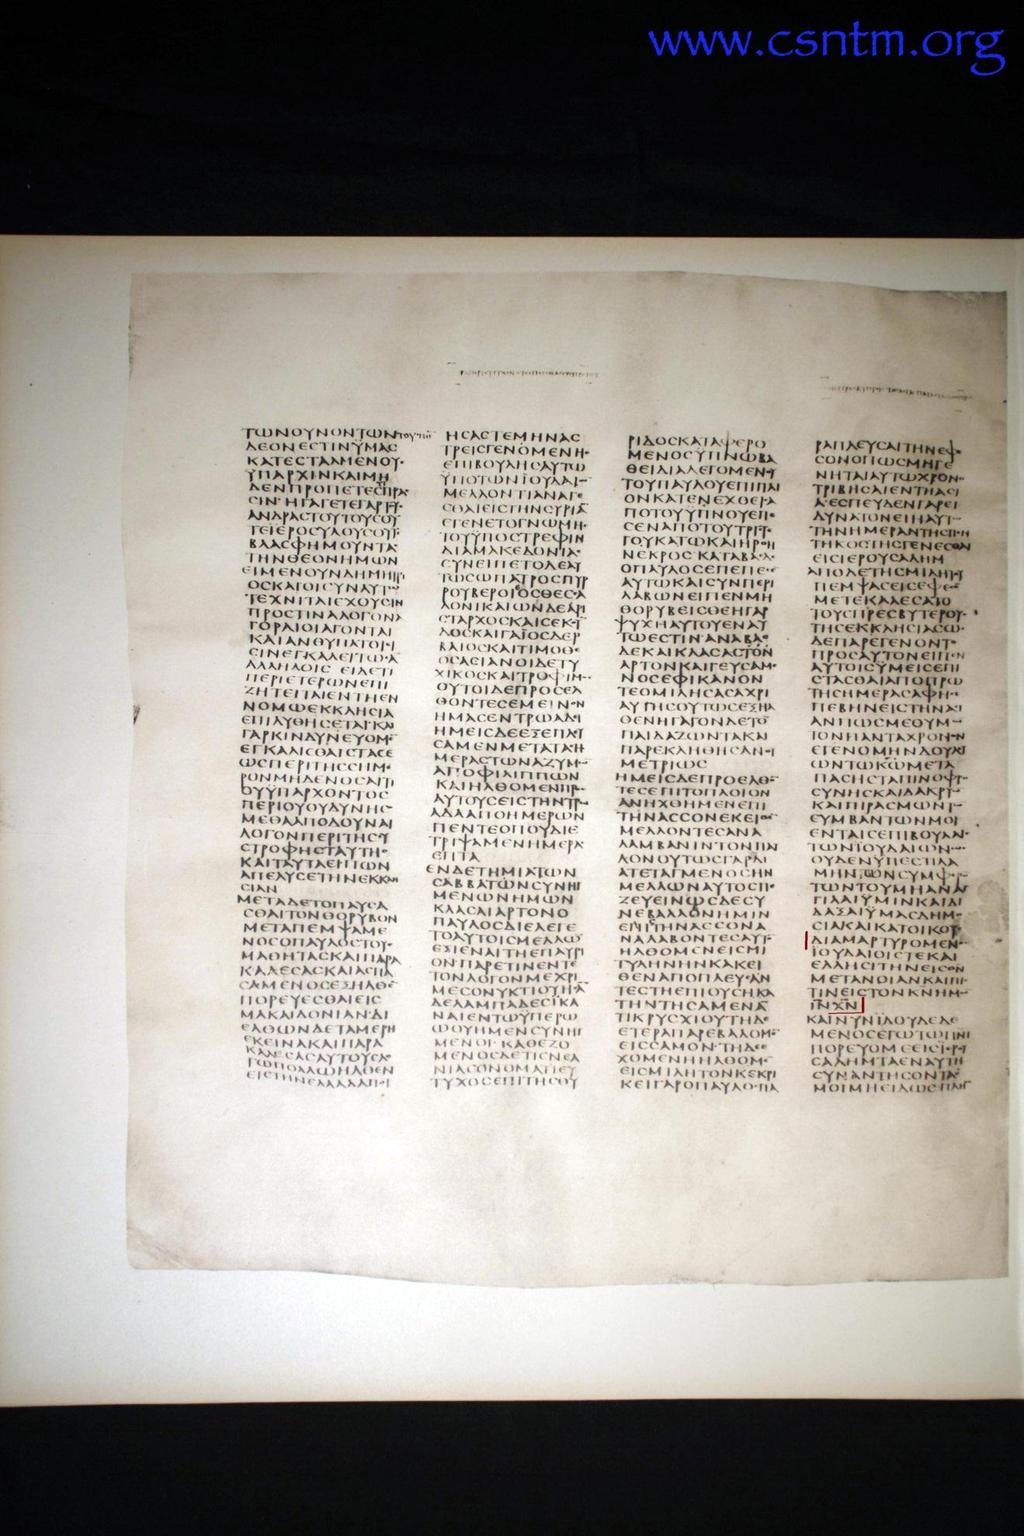 www.csntm.org
ΤΩΝΟΥΝΟΝΤΩΝΤΟΥΤΩ̅
ΔΕΟΝΕϹΤΙΝΥΜΑϹ
ΚΑΤΕϹΤΑΛΜΕΝΟΥϹ
ΥΠΑΡΧΙΝΚΑΙΜΗ
ΔΕΝΠΡΟΠΕΤΕϹΠΡΑϹ
ϹΙΝ·ΗΓΑΓΕΤΕΓΑΡΤΟΥϹ
ΑΝΔΡΑϹΤΟΥΤΟΥϹΟΥ
ΤΕΙΕΡΟϹΥΛΟΥϹΟΥΤΕ
ΒΛΑϹΦΗΜΟΥΝΤΑϹ
ΤΗΝΘΕΟΝΗΜΩΝ
ΕΙΜΕΝΟΥΝΔΗΜΗΤΡΙ
ΟϹΚΑΙΟΙϹΥΝΑΥΤΩ
ΤΕΧΝΙΤΑΙΕΧΟΥϹΙΝ
ΠΡΟϹΤΙΝΑΛΟΓΟΝΑ
ΓΟΡΑΙΟΙΑΓΟΝΤΑΙ
ΚΑΙΑΝΘΥΠΑΤΟΙΕΙ
ϹΙΝΕΓΚΑΛΕΙΤΩϹΑ
ΑΛΛΗΛΟΙϹ ΕΙΔΕΤΙ
ΠΕΡΙΕΤΕΡΩΝΕΠΙ
ΖΗΤΕΙΤΑΙΕΝΤΗΕΝ
ΝΟΜΩΕΚΚΛΗϹΙΑ
ΕΠΙΛΥΘΗϹΕΤΑΙ·ΚΑΙ
ΓΑΡΚΙΝΔΥΝΕΥΟΜΕ
ΕΓΚΑΛΙϹΘΑΙϹΤΑϹΕ
ΩϹΠΕΡΙΤΗϹϹΗΜΕ
ΡΟΝΜΗΔΕΝΟϹΑΙΤΙ
ΟΥΥΠΑΡΧΟΝΤΟϹ
ΠΕΡΙΟΥΟΥΔΥΝΗϹΟ
ΜΕΘΑΑΠΟΔΟΥΝΑΙ
ΛΟΓΟΝΠΕΡΙΤΗϹϹΥ
ϹΤΡΟΦΗϹΤΑΥΤΗϹ
ΚΑΙΤΑΥΤΑΕΙΠΩΝ
ΑΠΕΛΥϹΕΤΗΝΕΚΚΛΗ
ϹΙΑΝ
ΜΕΤΑΔΕΤΟΠΑΥϹΑ
ϹΘΑΙΤΟΝΘΟΡΥΒΟΝ
ΜΕΤΑΠΕΜΨΑΜΕ
ΝΟϹΟΠΑΥΛΟϹΤΟΥϹ
ΜΑΘΗΤΑϹΚΑΙΠΑΡΑ
ΚΑΛΕϹΑϹΚΑΙΑϹΠΑ
ϹΑΜΕΝΟϹΕΞΗΛΘΕ
ΠΟΡΕΥΕϹΘΑΙΕΙϹ
ΜΑΚΑΙΔΟΝΙΑΝ·ΔΙ
ΕΛΘΩΝΔΕΤΑΜΕΡΗ
ΕΚΕΙΝΑΚΑΙΠΑΡΑ
ΚΑΛΕϹΑϹΑΥΤΟΥϹΛΟ
ΓΩΠΟΛΛΩΗΛΘΕΝ
ΕΙϹΤΗΝΕΛΛΑΔΑΠΟΙ
ΗϹΑϹΤΕΜΗΝΑϹ
ΤΡΕΙϹΓΕΝΟΜΕΝΗϹ
ΕΠΙΒΟΥΛΗϹΑΥΤΩ
ΥΠΟΤΩΝΙΟΥΔΑΙΩ
ΜΕΛΛΟΝΤΙΑΝΑΓΕ
ϹΘΑΙΕΙϹΤΗΝϹΥΡΙΑ̅
ΕΓΕΝΕΤΟΓΝΩΜΗϹ
ΤΟΥΥΠΟϹΤΡΕΦΙΝ
ΔΙΑΜΑΚΕΔΟΝΙΑϹ
ϹΥΝΕΙΠΕΤΟΔΕΑΥ
ΤΩϹΩΠΑΤΡΟϹΠΥΡ
ΡΟΥΒΕΡΟΙΟϹΘΕϹϹΑ
ΛΟΝΙΚΑΙΩΝΔΕΑΡΙ
ϹΤΑΡΧΟϹΚΑΙϹΕΚΟΥ
ΔΟϹΚΑΙΓΑΪΟϹΔΕΡ
ΒΑΙΟϹΚΑΙΤΙΜΟΘΕ
ΟϹΑϹΙΑΝΟΙΔΕΤΥ
ΧΙΚΟϹΚΑΙΤΡΟΦΙΜΟϹ
ΟΥΤΟΙΔΕΠΡΟϹΕΛ
ΘΟΝΤΕϹΕΜΕΙΝΟΝ
ΗΜΑϹΕΝΤΡΩΑΔΙ
ΗΜΕΙϹΔΕΕΞΕΠΛΕΥ
ϹΑΜΕΝΜΕΤΑΤΑϹΗ
ΜΕΡΑϹΤΩΝΑΖΥΜΩ
ΑΠΟΦΙΛΙΠΠΩΝ
ΚΑΙΗΛΘΟΜΕΝΠΡΟϹ
ΑΥΤΟΥϹΕΙϹΤΗΝΤΡΩ
ΑΔΑΑΠΟΗΜΕΡΩΝ
ΠΕΝΤΕΟΠΟΥΔΙΕ
ΤΡΙΨΑΜΕΝΗΜΕΡΑϹ
ΕΠΤΑ
ΕΝΔΕΤΗΜΙΑΤΩΝ
ϹΑΒΒΑΤΩΝϹΥΝΗΓ
ΜΕΝΩΝΗΜΩΝ
ΚΛΑϹΑΙΑΡΤΟΝΟ
ΠΑΥΛΟϹΔΙΕΛΕΓΕ
ΤΟΑΥΤΟΙϹΜΕΛΛΩ
ΕΞΙΕΝΑΙΤΗΕΠΑΥΡΙ
ΟΝΠΑΡΕΤΙΝΕΝΤΕ
ΤΟΝΛΟΓΟΝΜΕΧΡΙ
ΜΕϹΟΝΥΚΤΙΟΥΗϹΑ
ΔΕΛΑΜΠΑΔΕϹΙΚΑ
ΝΑΙΕΝΤΩΥΠΕΡΩ
ΩΟΥΗΜΕΝϹΥΝΗΓ
ΜΕΝΟΙ·ΚΑΘΕΖΟ
ΜΕΝΟϹΔΕΤΙϹΝΕΑ
ΝΙΑϹΟΝΟΜΑΤΙΕΥ
ΤΥΧΟϹΕΠΙΤΗϹΘΥ
ΡΙΔΟϹΚΑΙΑΦΕΡΟ
ΜΕΝΟϹΥΠΝΩΒΑ
ΘΕΙΔΙΑΛΕΓΟΜΕΝΟΥ
ΤΟΥΠΑΥΛΟΥΕΠΙΠΛΙ
ΟΝΚΑΤΕΝΕΧΘΕΙϹΑ
ΠΟΤΟΥΥΠΝΟΥΕΠΕ
ϹΕΝΑΠΟΤΟΥΤΡΙϹΤΕ
ΓΟΥΚΑΤΩΚΑΙΗΡΘΗ
ΝΕΚΡΟϹ·ΚΑΤΑΒΑϹΔΕ
ΟΠΑΥΛΟϹΕΠΕΠΕϹΕ
ΑΥΤΩΚΑΙϹΥΝΠΕΡΙ
ΛΑΒΩΝΕΙΠΕΝΜΗ
ΘΟΡΥΒΕΙϹΘΕΗΓΑΡ
ΨΥΧΗΑΥΤΟΥΕΝΑΥ
ΤΩΕϹΤΙΝ·ΑΝΑΒΑϹ
ΔΕΚΑΙΚΛΑϹΑϹΤΟΝ
ΑΡΤΟΝΚΑΙΓΕΥϹΑΜΕ
ΝΟϹΕΦΙΚΑΝΟΝ
ΤΕΟΜΙΛΗϹΑϹΑΧΡΙ
ΑΥΓΗϹΟΥΤΩϹΕΞΗΛ
ΘΕΝΗΓΑΓΟΝΔΕΤΟ
ΠΑΙΔΑΖΩΝΤΑΚΑΙ
ΠΑΡΕΚΛΗΘΗϹΑΝΟΥ
ΜΕΤΡΙΩϹ
ΗΜΕΙϹΔΕΠΡΟΕΛΘΟ
ΤΕϹΕΠΙΤΟΠΛΟΙΟΝ
ΑΝΗΧΘΗΜΕΝΕΠΙ
ΤΗΝΑϹϹΟΝΕΚΕΙΘΕ
ΜΕΛΛΟΝΤΕϹΑΝΑ
ΛΑΜΒΑΝΙΝΤΟΝΠΑΥ
ΛΟΝΟΥΤΩϹΓΑΡΔΙ
ΑΤΕΤΑΓΜΕΝΟϹΗΝ
ΜΕΛΛΩΝΑΥΤΟϹΠΕ
ΖΕΥΕΙΝΩϹΔΕϹΥ
ΝΕΒΑΛΛΟΝΗΜΙΝ
ΕΠΙΤΗΝΑϹϹΟΝΑ
ΝΑΛΑΒΟΝΤΕϹΑΥΤΟ
ΗΛΘΟΜΕΝΕΙϹΜΙ
ΤΥΛΗΝΗΝΚΑΚΕΙ
ΘΕΝΑΠΟΠΛΕΥϹΑΝ
ΤΕϹΤΗΕΠΙΟΥϹΗΚΑ
ΤΗΝΤΗϹΑΜΕΝΑ̅
ΤΙΚΡΥϹΧΙΟΥΤΗΔΕ
ΕΤΕΡΑΠΑΡΕΒΑΛΟΜΕ
ΕΙϹϹΑΜΟΝ·ΤΗΔΕΕ
ΧΟΜΕΝΗΗΛΘΟΜΕ
ΕΙϹΜΙΛΗΤΟΝΚΕΚΡΙ
ΚΕΙΓΑΡΟΠΑΥΛΟϹΠΑ
ΡΑΠΛΕΥϹΑΙΤΗΝΕΦΕ
ϹΟΝΟΠΩϹΜΗΓΕ
ΝΗΤΑΙΑΥΤΩΧΡΟΝΟ
ΤΡΙΒΗϹΑΙΕΝΤΗΑϹΙ
Α·ΕϹΠΕΥΔΕΝΓΑΡΕΙ
ΔΥΝΑΤΟΝΕΙΗΑΥΤΩ
ΤΗΝΗΜΕΡΑΝΤΗϹΠΕΝ
ΤΗΚΟϹΤΗϹΓΕΝΕϹΘΑΙ
ΕΙϹΙΕΡΟΥϹΑΛΗΜ
ΑΠΟΔΕΤΗϹΜΙΛΗΤΟΥ
ΠΕΜΨΑϹΕΙϹΕΦΕϹΟ
ΜΕΤΕΚΑΛΕϹΑΤΟ
ΤΟΥϹΠΡΕϹΒΥΤΕΡΟΥϹ
ΤΗϹΕΚΚΛΗϹΙΑϹΩϹ
ΔΕΠΑΡΕΓΕΝΟΝΤΟ
ΠΡΟϹΑΥΤΟΝΕΙΠΕΝ
ΑΥΤΟΙϹΥΜΕΙϹΕΠΙ
ϹΤΑϹΘΑΙΑΠΟΠΡΩ
ΤΗϹΗΜΕΡΑϹΑΦΗϹΕ
ΠΕΒΗΝΕΙϹΤΗΝΑϹΙ
ΑΝΠΩϹΜΕΘΥΜΩ
ΤΟΝΠΑΝΤΑΧΡΟΝΟΝ
ΕΓΕΝΟΜΗΝΔΟΥΛΕΥ
ΩΝΤΩΚ̅Ω̅ΜΕΤΑ
ΠΑϹΗϹΤΑΠΙΝΟΦΡΟ
ϹΥΝΗϹΚΑΙΔΑΚΡΥΩ
ΚΑΙΠΙΡΑϹΜΩΝΤΩ
ϹΥΜΒΑΝΤΩΝΜΟΙ
ΕΝΤΑΙϹΕΠΙΒΟΥΛΑΙϹ
ΤΩΝΙΟΥΔΑΙΩΝΩϹ
ΟΥΔΕΝΥΠΕϹΤΙΛΑ
ΜΗΝΤΩΝϹΥΜΦΕΡΟ
ΤΩΝΤΟΥΜΗΑΝΑΓ
ΓΙΛΑΙΥΜΙΝΚΑΙΔΙ
ΔΑΞΑΙΥΜΑϹΔΗΜΟ
ϹΙΑΚΑΙΚΑΤΟΙΚΟΥϹ
ΔΙΑΜΑΡΤΥΡΟΜΕΝΟϹ
ΙΟΥΔΑΙΟΙϹΤΕΚΑΙ
ΕΛΛΗϹΙΤΗΝΕΙϹΘΝ
ΜΕΤΑΝΟΙΑΝΚΑΙΠΙ
ϹΤΙΝΕΙϹΤΟΝΚΝΗΜΩ
Ι̅Ν̅Χ̅Ν̅
ΚΑΙΝΥΝΙΔΟΥΔΕΔΕ
ΜΕΝΟϹΕΓΩΤΩΠΝΙ
ΠΟΡΕΥΟΜΕΕΙϹΙΕΡΟΥ
ϹΑΛΗΜΤΑΕΝΑΥΤΗ
ϹΥΝΑΝΤΗϹΟΝΤΑ
ΜΟΙΜΗΕΙΔΩϹΠΛΗ